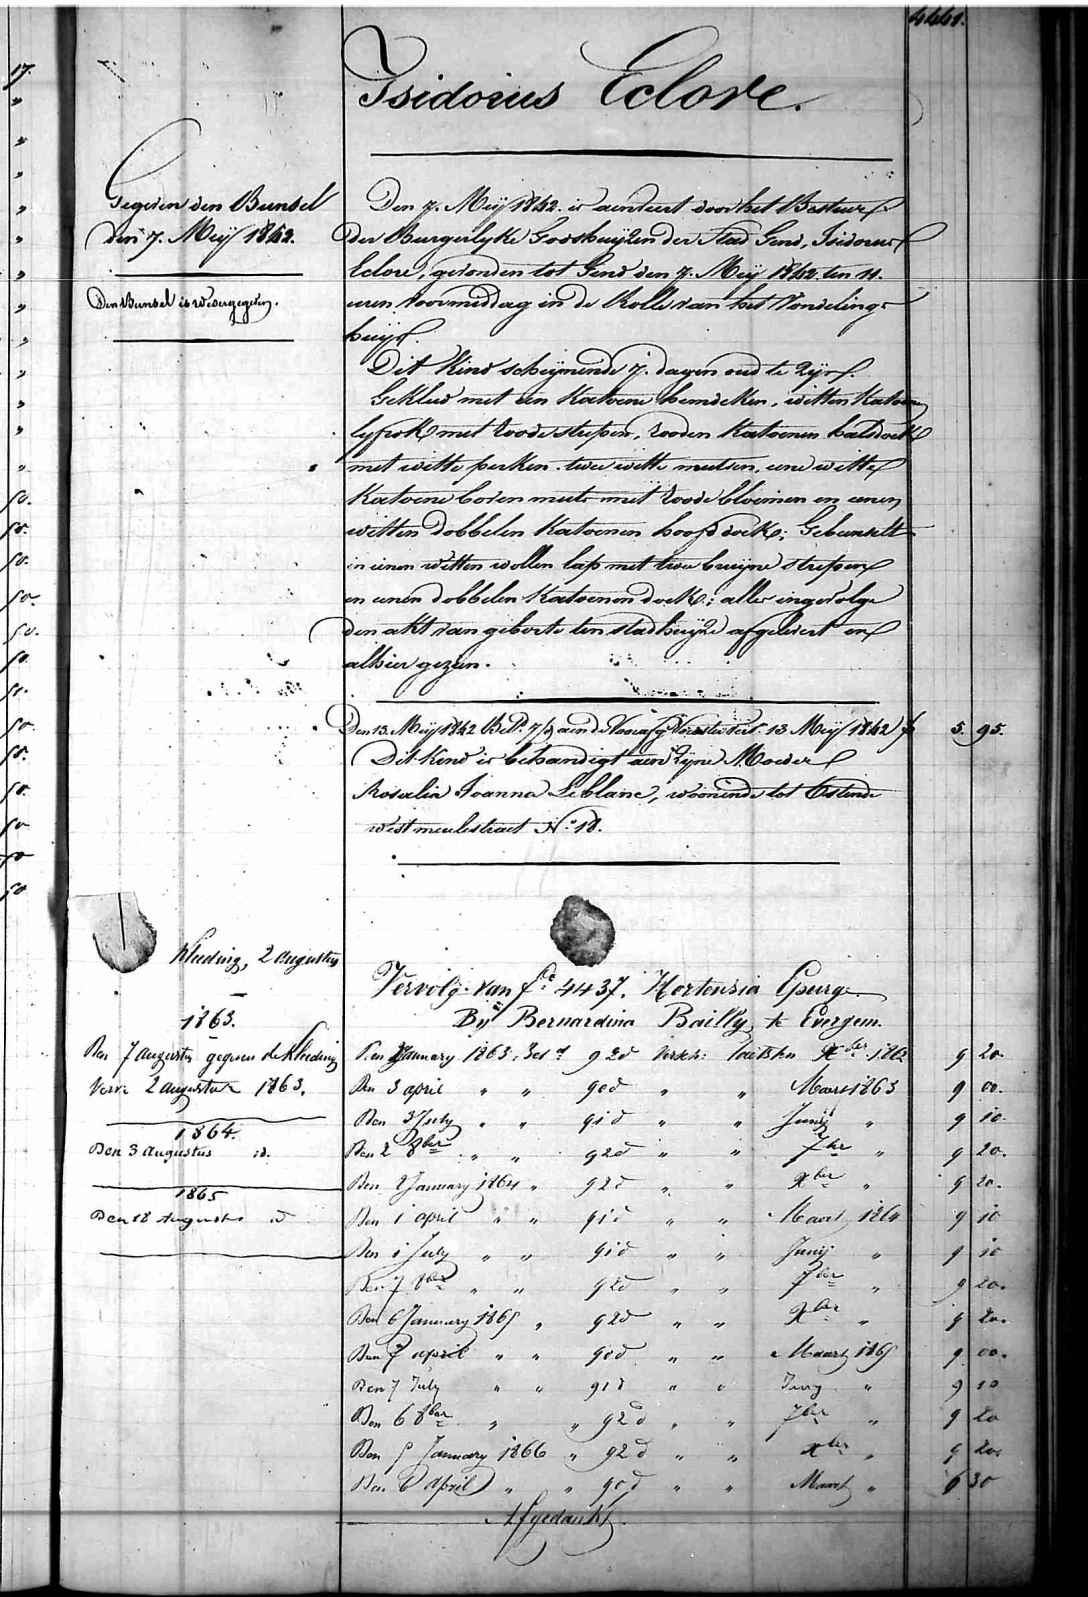 4441.
Isidorus Eclore.
Gegeven den Bunsel
den 7. Meij 1842.
Den Bunsel is wedergegeven.
Den 7. Meij 1842. is aenveert door het Bestuer
der Burgerlyke Godshuijzen der Stad Gend, Isidorus
Eclore, gevonden tot Gend den 7. Meij 1842. ten 11.
uren voormiddag in de Rolle van het Vondeling-
huijs.
Dit Kind schijnende 7. dagen oud te zijn.
Gekleed met een Katoene hemdeken, witten Katoenen
lyfrok met roode strepen, rooden Katoenen halsdoek
met witte perken, twee witte mutsen, eene witte
Katoene boven muts met roode bloemen en eenen
witten dobbelen Katoenen hoofddoek; Gebunselt
in eenen witten wollen lap met twee bruijne strepen
en eenen dobbelen Katoenen doek; alles ingevolge
den akt van geboorte ten stadhuijze afgelevert en
alhier gezien.
Den 13. Meij 1842 13 Meij 1842 f 5. 95.
Dit Kind is behandigt aen zijne Moeder
Rosalia Joanna Leblanc, woonende tot Ostende
west meulestraet N.o 18.
Kleeding, 2 augustus
1863.
Den 7 augustus gegeven de Kleeding
2 augustus 1863.
1864.
Den 3 augustus id.
1865
Den 18 augustus id
Vervolg van f.o 4437. Hortensia Epurge
Bij Bernardina Bailly te Evergem.
Den January 1863 92d Xber 1862 9 20.
Den 3 april " " 90d " " Maart 1863 9 00.
Den 3 July " " 91d " " Junij " 9 10.
Den 2 8ber " " 92d " " 7ber " 9 20.
Den 2 January 1864 " 92d " " Xber " 9 20.
Den 1 april " " 91d " " Maart 1864 9 10
Den 1 July " " 91d " " Junij " 9 10
Den 7 8ber " " 92d " " 7ber " 9 20.
Den 6 January 1865 " 92d " " Xber " 9 20.
Den 7 april " " 90d " " Maart 1865 9 00.
Den 7 July " " 91d " " Juny " 9 10
Den 6 8ber " " 92d " " 7ber " 9 20
Den 5 January 1866 " 92d " " Xber " 9 20.
Den 6 april " " 90d " " Maart " 6 30
Afgedankt.